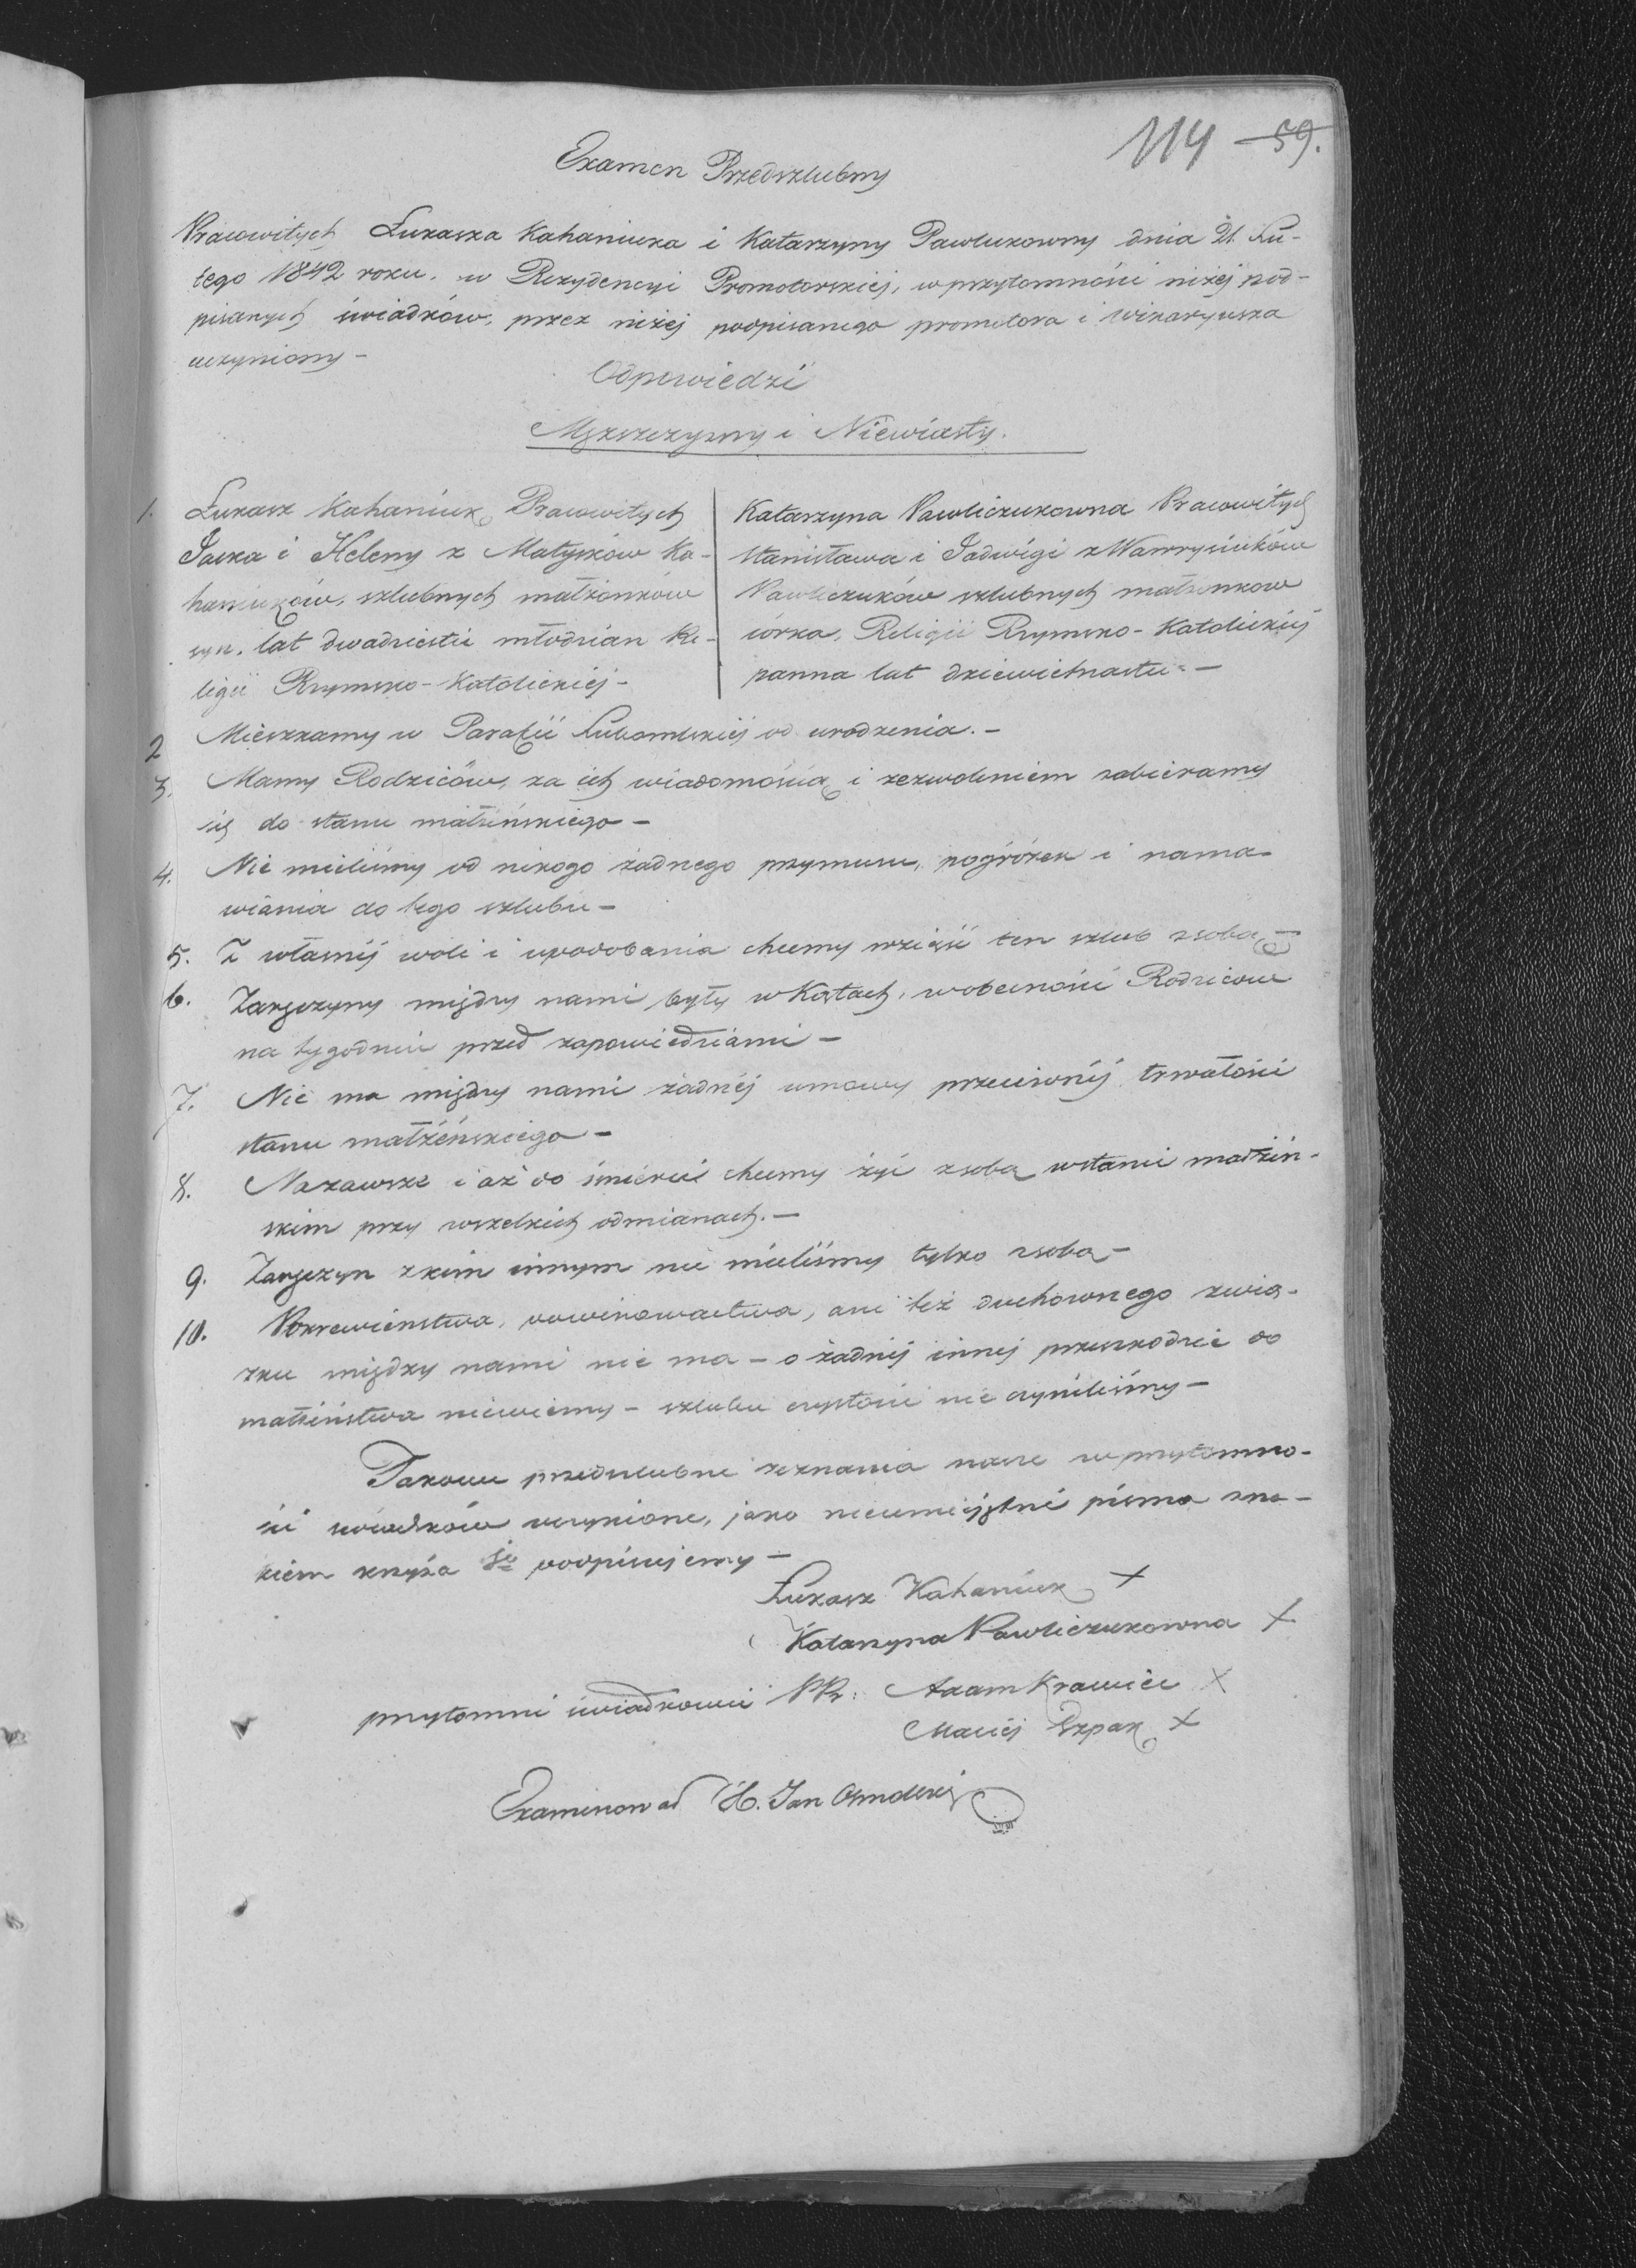 114 59.
Examen Przedszlubny
Pracowitych Łukasza Kahaniuka i Katarzyny Pawlukowny dnia 21. Lu-
tego 1842 roku. w Rezydencyi Promotorskiej, w przytomnósci niżéj pod-
pisanych świadków, przez niżéj podpisanego promotora i wikaryusza
uczyniony –
Odpowiedzi
Męzczyzny i Niewiasty.
1. Łukasz Kahaniuk, Pracowitych
Jacka i Heleny z Matysków Ka-
haniuków, szlubnych małżonków
syn. lat dwadzieścia młodzian Re-
ligii Rzymsko-Katolickiéj –
Katarzyna Pawliczukowna Pracowitych
Stanisława i Jadwigi z Wawryniuków
Pawliczuków szlubnych małżonkow
córka, Religii Rzymsko-Katolickiéj
panna lat dziewietnastu –
2 Mieszkamy w Parafii Lubomlskiéj od urodzenia. –
3. Mamy Rodziców, za ich wiadomóscią i zezwoleniem zabieramy
się do stanu małżeńskiego –
4. Nie mieliśmy od nikogo żadnego przymusu, pogróżek i nama-
wiania do tego szlubu –
5. Z własnéj woli i upodobania chcemy wziąść ten szlub z sobą –
6. Zaręczyny między nami były w Kątach, w obecnósci Rodzicow
na tygodniu przed zapowiedziami –
7. Nie ma między nami żadnéj umowy przeciwnéj trwałości
stanu małżeńskiego –
8. Na zawsze i aż do śmierci chcemy żyć z sobą w stanie małżeń-
skim przy wszelkich odmianach. –
9. Zaręczyn z kim innym nie mieliśmy tylko z sobą –
10. Pokrewieństwa, powinowactwa, ani też duchownego zwią-
zku między nami nie ma – o żadnéj innéj przeszkodzie do
małżeństwa niewiemy – szlubu czystości nie czyniliśmy –
Takowe przedszlubne zeznania nasze w przytomno-
ści świadków uczynione, jako nieumiejętni pisma zna-
kiem krzyża je podpisujemy –
Łukasz Kahaniuk +
Katarzyna Pawliczukowna +
przytomni świadkowie PP: Adam Krawiec +
Maciéj Szpak +
Examinował X. Jan